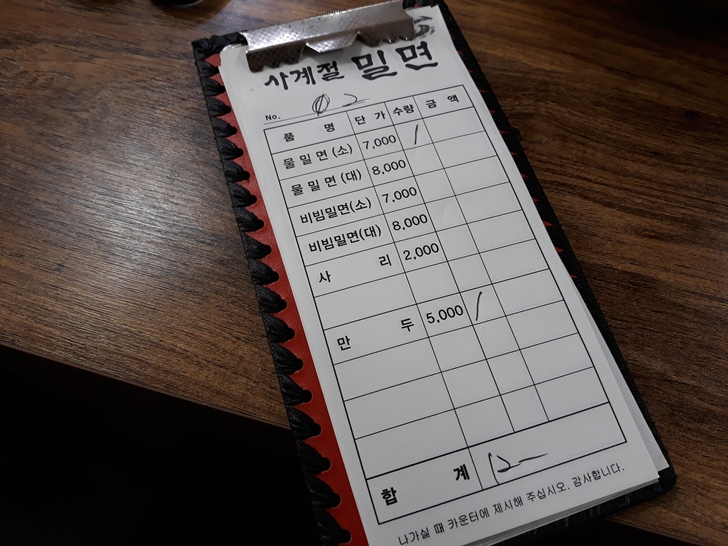 사계절 밀면
No. 02
품 명 단 가 수량 금 액
물밀면(소) 7,000 /
물밀면(대) 8,000
비빔밀면(소) 7,000
비빔밀면(대) 8,000
사 리 2,000
만 두 5,000 /
합 계 12-
나가실 때 카운터에 제시해 주십시오. 감사합니다.